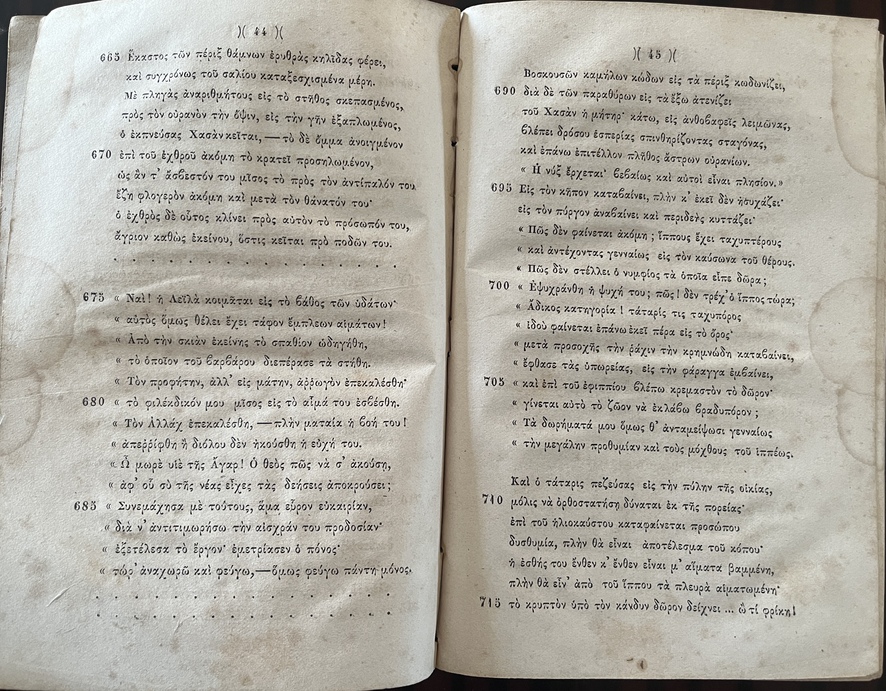 )( 44 )(
665 Ἕκαστος τῶν πέριξ θάμνων ἐρυθρὰς κηλῖδας φέρει,
καὶ συγχρόνως τοῦ σαλίου καταξεσχισμένα μέρη.
Μὲ πληγὰς ἀναριθμήτους εἰς τὸ στῆθος σκεπασμένος,
πρὸς τὸν οὐρανὸν τὴν ὄψιν, εἰς τὴν γῆν ἐξαπλωμένος,
ὁ ἐκπνεύσας Χασὰν κεῖται, — τὸ δὲ ὄμμα ἀνοιγμένον
670 ἐπὶ τοῦ ἐχθροῦ ἀκόμη τὸ κρατεῖ προσηλωμένον,
ὡς ἂν τ' ἄσβεστόν του μῖσος τὸ πρὸς τὸν ἀντίπαλόν του
ἔζη φλογερὸν ἀκόμη καὶ μετὰ τὸν θάνατόν του·
ὁ ἐχθρὸς δὲ οὗτος κλίνει πρὸς αὐτὸν τὸ πρόσωπόν του,
ἄγριον καθὼς ἐκείνου, ὅστις κεῖται πρὸ ποδῶν του.
. . . . . . . . . . . . .
675 « Ναὶ! ἡ Λεϊλὰ κοιμᾶται εἰς τὸ βάθος τῶν ὑδάτων·
« αὐτὸς ὅμως θέλει ἔχει τάφον ἔμπλεων αἱμάτων!
« Ἀπὸ τὴν σκιὰν ἐκείνης τὸ σπαθίον ὡδηγήθη,
« τὸ ὁποῖον τοῦ βαρβάρου διεπέρασε τὰ στήθη.
« Τὸν προφήτην, ἀλλ' εἰς μάτην, ἀῤῥωγὸν ἐπεκαλέσθη·
680 « τὸ φιλέκδικόν μου μῖσος εἰς τὸ αἷμά του ἐσβέσθη.
« Τὸν Ἀλλὰχ ἐπεκαλέσθη, — πλὴν ματαία ἡ βοή του!
« ἀπερρίφθη ἢ διόλου δὲν ἠκούσθη ἡ εὐχή του.
« Ὦ μωρὲ υἱὲ τῆς Ἄγαρ! Ὁ θεὸς πῶς νὰ σ' ἀκούσῃ,
« ἀφ' οὗ σὺ τῆς νέας εἶχες τὰς δεήσεις ἀποκρούσει;
685 « Συνεμάχησα μὲ τούτους, ἅμα εὗρον εὐκαιρίαν,
« διὰ ν' ἀντιτιμωρήσω τὴν αἰσχράν του προδοσίαν·
« ἐξετέλεσα τὸ ἔργον· ἐμετρίασεν ὁ πόνος·
« τώρ' ἀναχωρῶ καὶ φεύγω, — ὅμως φεύγω πάντη μόνος.
. . . . . . . . . . . . .
. . . . . . . . . . . . .
)( 45 )(
Βοσκουσῶν καμήλων κώδων εἰς τὰ πέριξ κωδωνίζει,
690 διὰ δὲ τῶν παραθύρων εἰς τὰ ἔξω ἀτενίζει
τοῦ Χασὰν ἡ μήτηρ· κάτω, εἰς ἀνθοβαφεῖς λειμῶνας,
βλέπει δρόσου ἑσπερίας σπινθηρίζοντας σταγόνας,
καὶ ἐπάνω ἐπιτέλλον πλῆθος ἄστρων οὐρανίων.
« Ἡ νὺξ ἔρχεται· βεβαίως καὶ αὐτοὶ εἶναι πλησίον.»
695 Εἰς τὸν κῆπον καταβαίνει, πλὴν κ' ἐκεῖ δὲν ἡσυχάζει·
εἰς τὸν πύργον ἀναβαίνει καὶ περιδεὴς κυττάζει·
« Πῶς δὲν φαίνεται ἀκόμη ; ἵππους ἔχει ταχυπτέρους
« καὶ ἀντέχοντας γενναίως εἰς τὸν καύσωνα τοῦ θέρους.
« Πῶς δὲν στέλλει ὁ νυμφίος τὰ ὁποῖα εἶπε δῶρα ;
700 « Ἐψυχράνθη ἡ ψυχή του ; πῶς! δὲν τρέχ' ὁ ἵππος τώρα ;
« Ἄδικος κατηγορία ! τάταρίς τις ταχυπόρος
« ἰδοὺ φαίνεται ἐπάνω ἐκεῖ πέρα εἰς τὸ ὄρος·
« μετὰ προσοχῆς τὴν ῥάχιν τὴν κρημνώδη καταβαίνει,
« ἔφθασε τὰς ὑπωρείας, εἰς τὴν φάραγγα ἐμβαίνει,
705 « καὶ ἐπὶ τοῦ ἐφιππίου βλέπω κρεμαστὸν τὸ δῶρον·
« γίνεται αὐτὸ τὸ ζῶον νὰ ἐκλάβω βραδυπόρον ;
« Τὰ δωρήματά μου ὅμως θ' ἀνταμείψωσι γενναίως
« τὴν μεγάλην προθυμίαν καὶ τοὺς μόχθους τοῦ ἱππέως.
Καὶ ὁ τάταρις πεζεύσας εἰς τὴν πύλην τῆς οἰκίας,
710 μόλις νὰ ὀρθοστατήσῃ δύναται ἐκ τῆς πορείας·
ἐπὶ τοῦ ἡλιοκαύστου καταφαίνεται προσώπου
δυσθυμία, πλὴν θὰ εἶναι ἀποτέλεσμα τοῦ κόπου·
ἡ ἐσθής του ἔνθεν κ' ἔνθεν εἶναι μ' αἵματα βαμμένη,
πλὴν θὰ εἶν' ἀπὸ τοῦ ἵππου τὰ πλευρὰ αἱματωμένη·
715 τὸ κρυπτὸν ὑπὸ τὸν κάνδυν δῶρον δείχνει ... ὢ τί φρίκη!